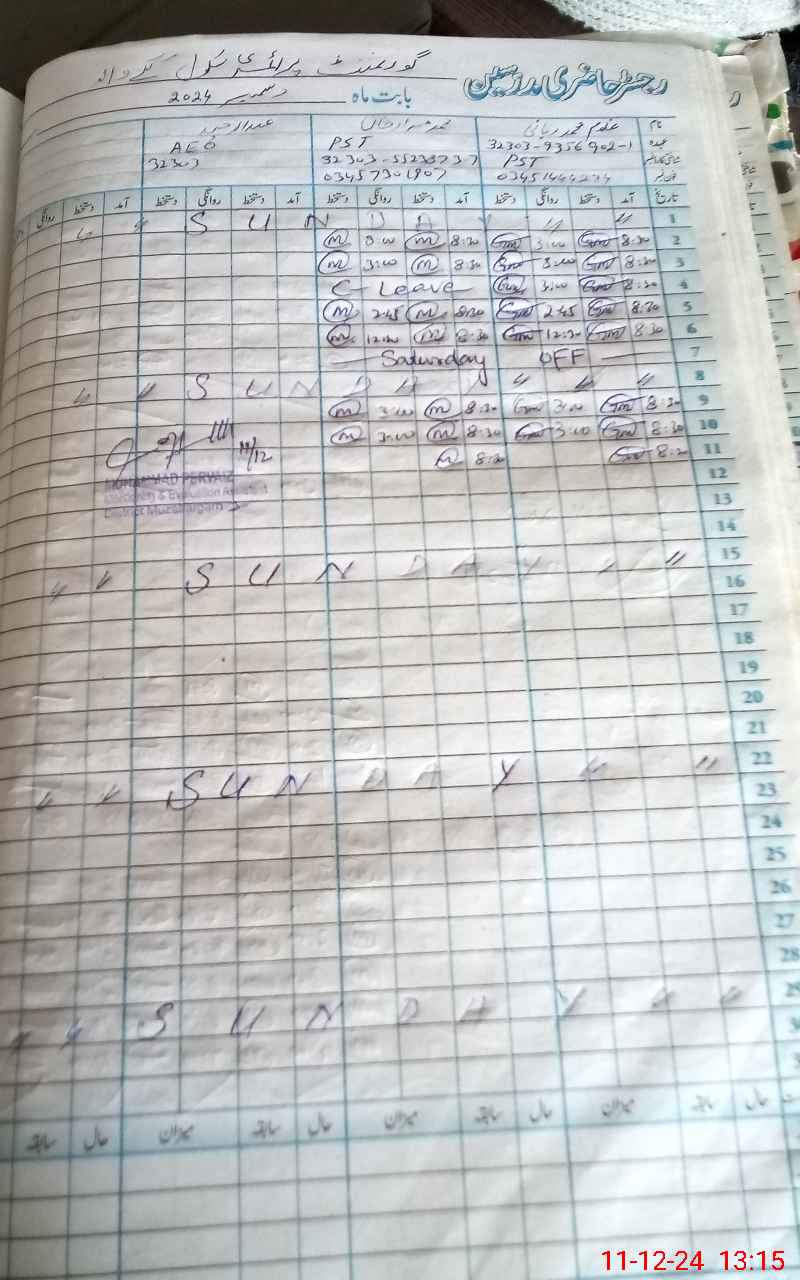 گورنمنٹ پرائمری سکول
رجسٹر حاضری مدرسین
بابت ماہ دسمبر 2024
نام غلام محمد ربانی
عہدہ 32303-9356902-1 PST AEO
PST 32303-5523373-7 32303
03451444234 03457301907
تاریخ آمد دستخط روانگی دستخط آمد دستخط روانگی دستخط آمد دستخط روانگی دستخط آمد دستخط روانگی
1 〃 〃 S U N D A Y 〃 〃
2 8:30 Gm 3:00 Gm 8:30 m 3:00 m
3 8:30 Gm 3:00 Gm 8:30 m 3:00 m
4 8:30 Gm 3:00 Gm C-Leave
5 8:30 Gm 2:45 Gm 8:30 m 2:45 m
6 8:30 Gm 12:30 Gm 8:30 m 12:30 m
7 Saturday OFF
8 〃 〃 S U N D A Y 〃 〃 〃
9 8:30 Gm 3:00 Gm 8:30 m 3:00 m
10 8:30 Gm 3:00 Gm 8:30 m 3:00 m
11 8:30 Gm 8:30 m
11/12
MUHAMMAD PERVAIZ
Monitoring & Evaluation Assistant
District Muzaffargarh
12
13
14
15 〃 〃 S U N D A Y 〃 〃
16
17
18
19
20
21
22 〃 〃 S U N D A Y 〃 〃
23
24
25
26
27
28
29 〃 〃 S U N D A Y 〃 〃
حال سابقہ میزان حال سابقہ میزان حال سابقہ میزان حال سابقہ
11-12-24 13:15